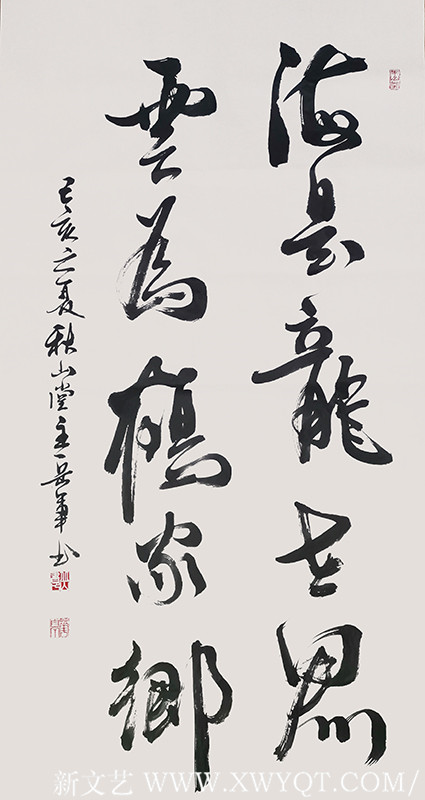 海是龍世界
雲為鶴家鄉
己亥之夏秋山堂主岳軍书
新文艺 WWW.XWYQT.COM/